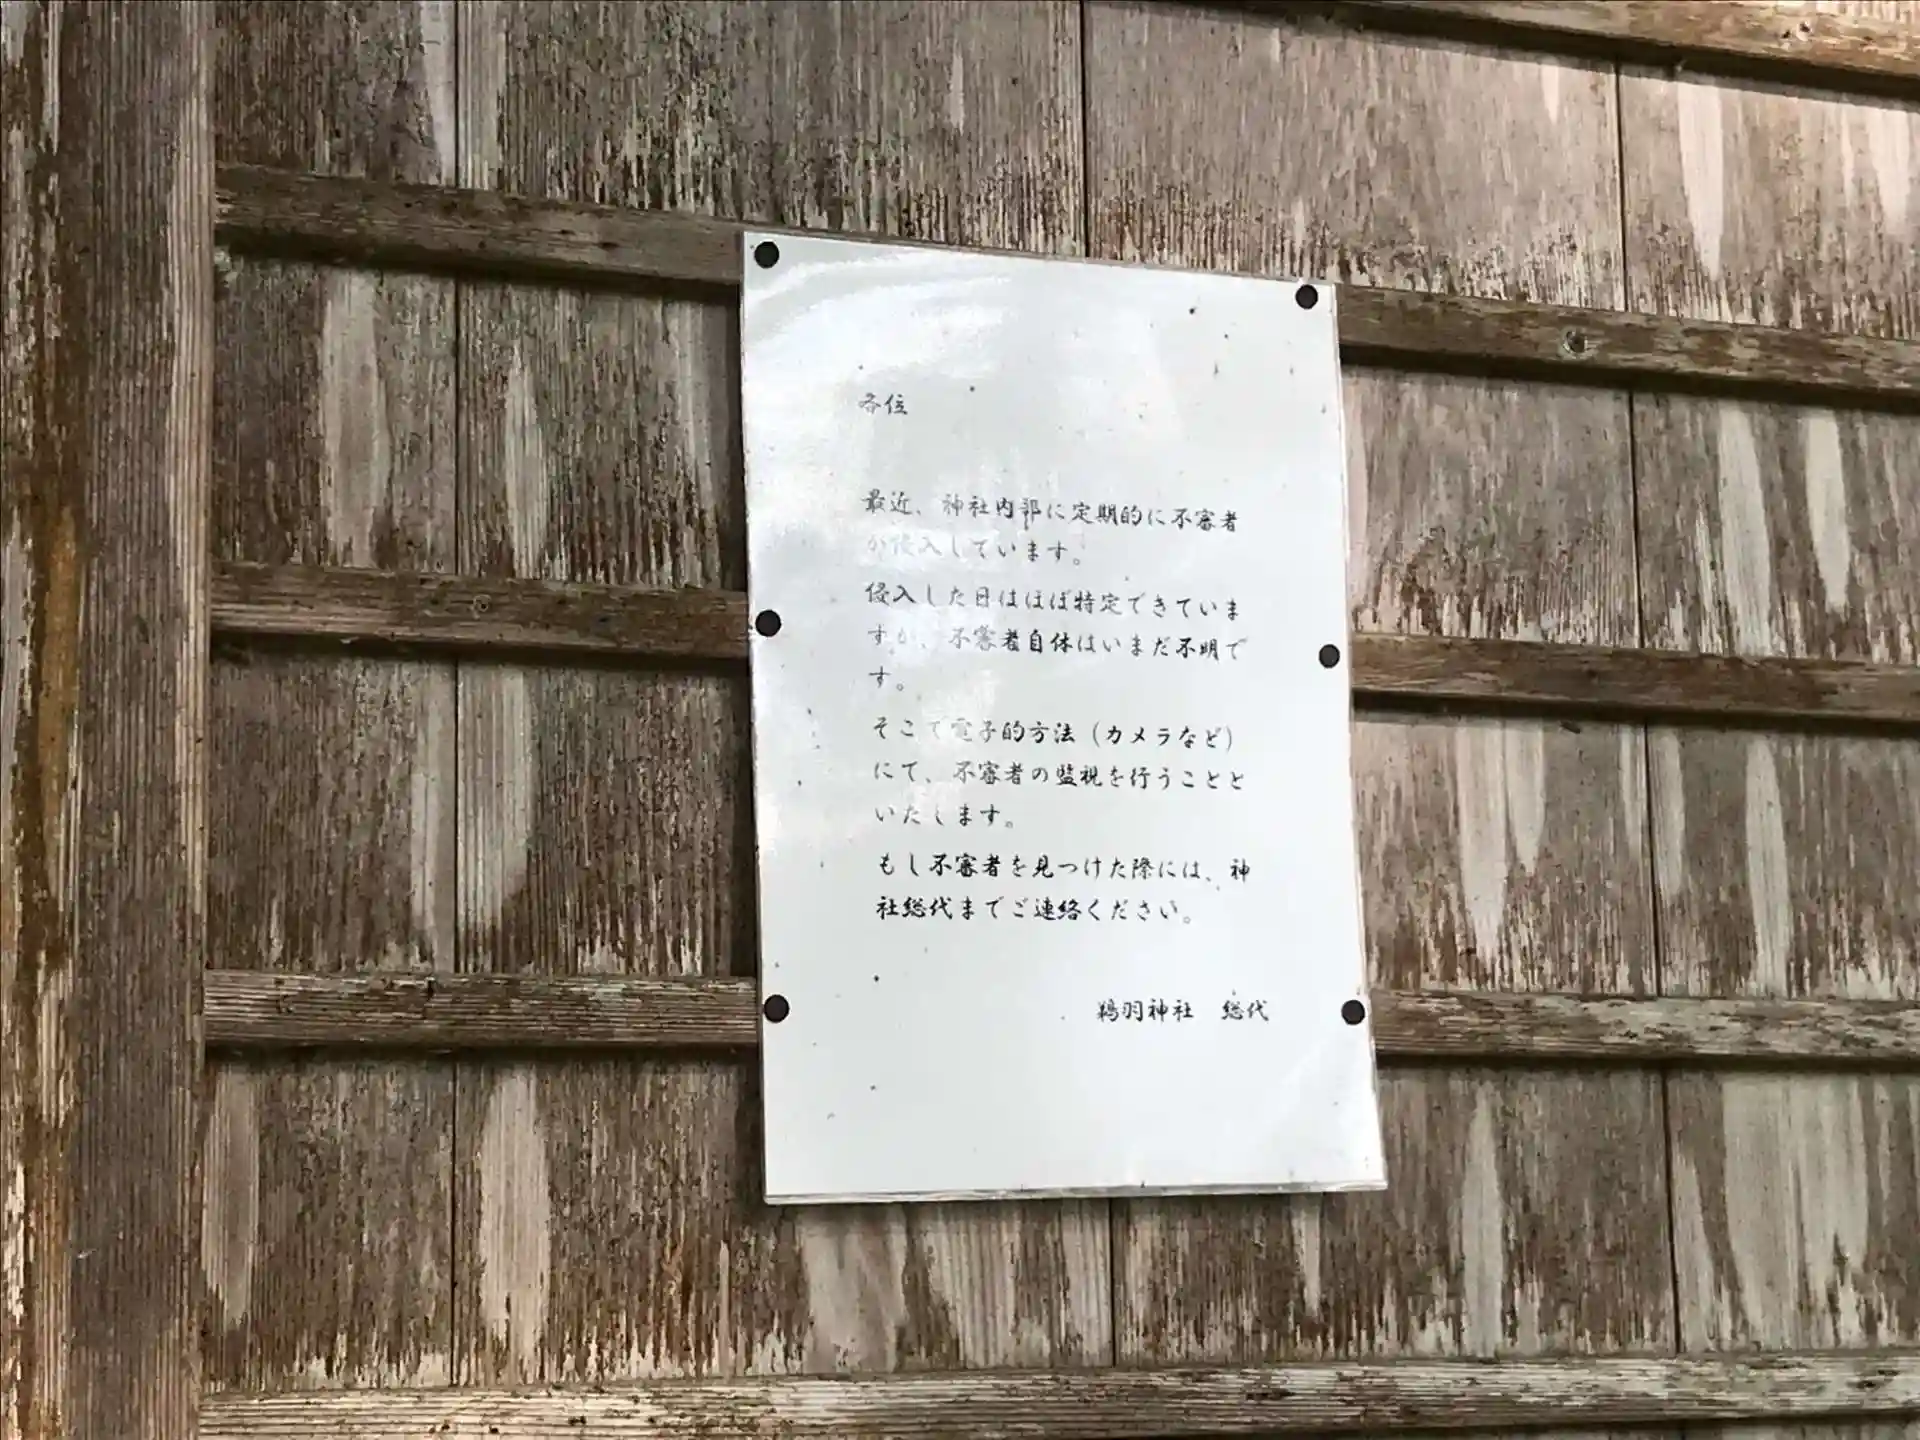 各位
最近、神社内部に定期的に不審者
が侵入しています。
侵入した日はほぼ特定できていま
すが、不審者自体はいまだ不明で
す。
そこで電子的方法（カメラなど）
にて、不審者の監視を行うことと
いたします。
もし不審者を見つけた際には、神
社総代までご連絡ください。
鵜羽神社　総代